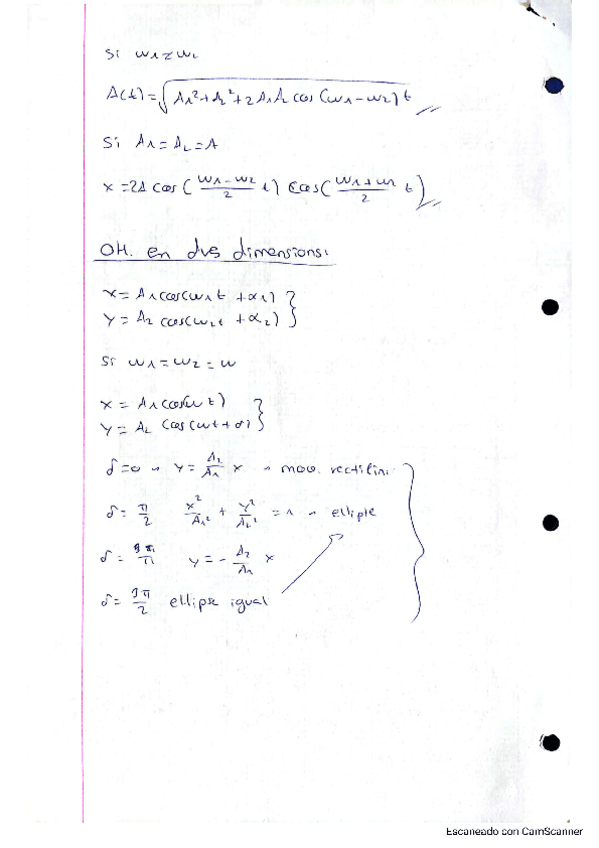 Si ω1≈ω2
A(t) = √(A1²+A2²+2A1A2 cos (ω1-ω2) t
Si A1 = A2 = A
x = 2A cos ( (ω1-ω2)/2 t) cos( (ω1+ω2)/2 t)
OH. en dues dimensions.
x = A1 cos(ω1t + α1)
y = A2 cos(ω2t + α2)
Si ω1 = ω2 = ω
x = A1 cos(ωt)
y = A2 cos(ωt+δ)
δ=0 → y = A2/A1 x → mov. rectilini
δ= π/2 x²/A1² + y²/A2² = 1 → ellipse
δ= y = - A2/A1 x
δ= 3π/2 ellipse igual
Escaneado con CamScanner